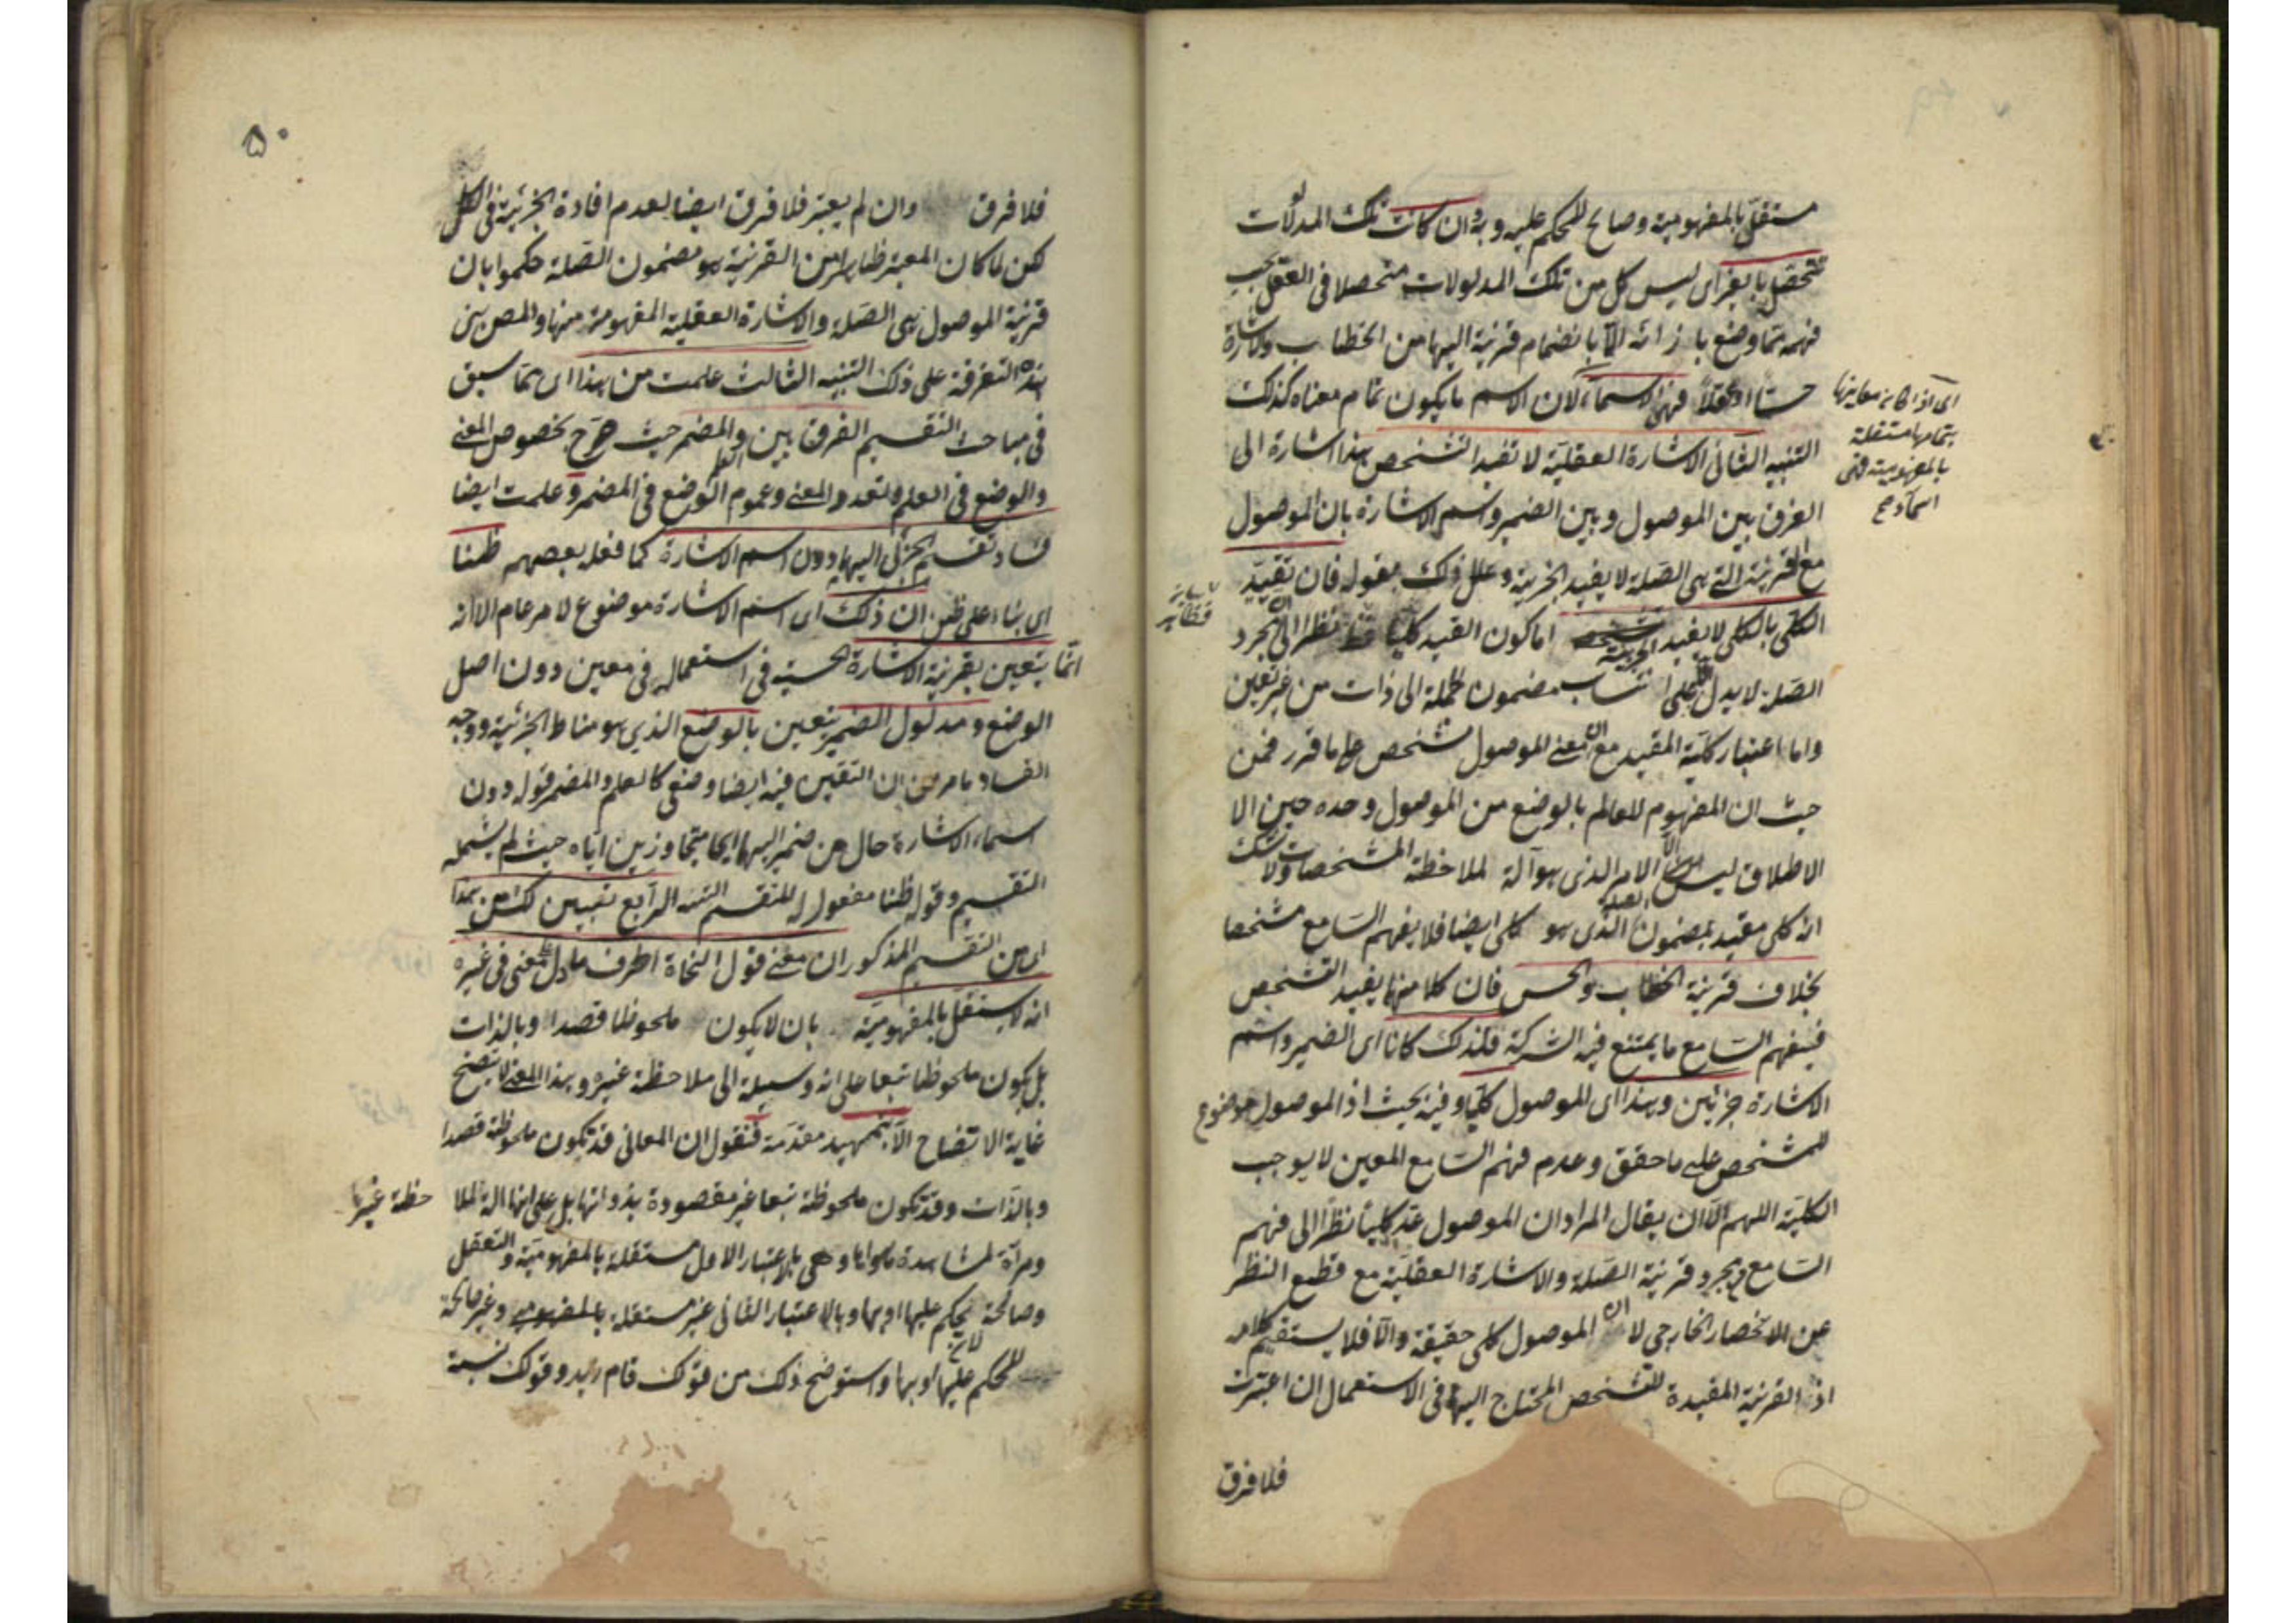 مستقل بالمفهومية وصالح للحكم عليه وبه وان كانت تلك المدلولات
تتحصل بالغير اى ليس كل من تلك المدلولات متحصلا فى العقل بحيث
فهمه مما وضع بازائه الا بانضمام قرينة اليها من الخطاب والاشارة
حسا او عقلا فهى الاسماء لان الاسم ما يكون تمام معناه كذلك
التنبيه الثانى الاشارة العقلية لا تفيد التشخص هذا اشارة الى
الفرق بين الموصول وبين الضمير واسم الاشارة بان الموصول
مع القرينة التى هى الصلة لا يفيد الجزئية وعلل ذلك بقوله فان تقييد
الكلى بالكلى لا يفيد الجزئية اما كون القيد كليا نظرا الى ان مجرد
الصلة لا يدل الا على انتساب مضمون الجملة الى ذات من غير تعين
واما اعتبار كلية المقيد مع ان معنى الموصول مشخص على ما قرر فمن
حيث ان المفهوم للعالم بالوضع من الموصول وحده حين الا
الاطلاق ليس الا الامر الذى هو آلة لملاحظة المشخصات ولا شك
انه كلى مقيد بمضمون الصلة الذى هو كلى ايضا فلا يفهم السامع مشخصا
بخلاف قرينة الخطاب والحس فان كلا منها يفيد التشخص
فيفهم السامع ما يمتنع فيه الشركة فلذلك كانا اى الضمير واسم
الاشارة جزئيين وهذا اى الموصول كليا وفيه بحيث اذ الموصول موضوع
للمشخص على ما حقق وعدم فهم السامع المعين لا يوجب
الكلية اللهم الا ان يقال المراد ان الموصول عد كليا نظرا الى فهم
السامع بمجرد قرينة الصلة والاشارة العقلية مع قطع النظر
عن الانحصار الخارجى لا ان الموصول كلى حقيقة والا فلا يستقيم كلامه
اذ القرينة المفيدة للتشخص المحتاج اليها فى الاستعمال ان اعتبرت
فلا فرق
اى اذا كانت معانيها
بتمامها مستقلة
بالمفهومية فهى
اسماء
٥٠
فلا فرق وان لم يعتبر فلا فرق ايضا لعدم افادة الجزئية فى الكل
لكن لما كان المعتبر ظاهرا من القرينة هو مضمون الصلة حكموا بان
قرينة الموصول هى الصلة والاشارة العقلية المفهومة منها والمص بنى
هذه التفرقة على ذلك التنبيه الثالث علمت من هذا اى مما سبق
فى مباحث التقسيم الفرق بين العلم والمضمر حيث صرح بخصوص المعنى
والوضع فى العلم وتعدد المعنى وعموم الوضع فى المضمر وعلمت ايضا
فساد تقسيم الجزئى اليهما دون اسم الاشارة كما فعله بعضهم ظنا
اى بناء على ظن ان ذلك اى اسم الاشارة موضوع لامر عام الا انه
انما يتعين بقرينة الاشارة الحسية فى استعماله فى معين دون اصل
الوضع ومدلول الضمير يتعين بالوضع الذى هو مناط الجزئية ووجه
الفساد ما مر من ان التعين فيه ايضا وضعى كالعلم والمضمر قوله دون
اسماء الاشارة حال من ضمير اليهما اى متجاوزين اياه حيث لم يشمله
التقسيم وقوله ظنا مفعول له للتقسيم التنبيه الرابع تبين لك من هذا
اى من التقسيم المذكور ان معنى قول النحاة الحرف ما دل على معنى فى غيره
انه لا يستقل بالمفهومية بان لا يكون ملحوظا قصدا وبالذات
بل يكون ملحوظا تبعا على انه وسيلة الى ملاحظة غيره وهذا المعنى لا يتضح
غاية الاتضاح الا بتمهيد مقدمة فنقول ان المعانى قد تكون ملحوظة قصدا
وبالذات وقد تكون ملحوظة تبعا غير مقصودة بذواتها بل على انها آلة لملا حظة غيرها
ومرآة لمشاهدة ما سواها وهى بالاعتبار الاول مستقلة بالمفهومية والتعقل
وصالحة ليحكم عليها او بها وبالاعتبار الثانى غير مستقلة بالمفهومية وغير صالحة
للحكم عليها او بها واستوضح ذلك من قولك قام زيد وقولك نسبة